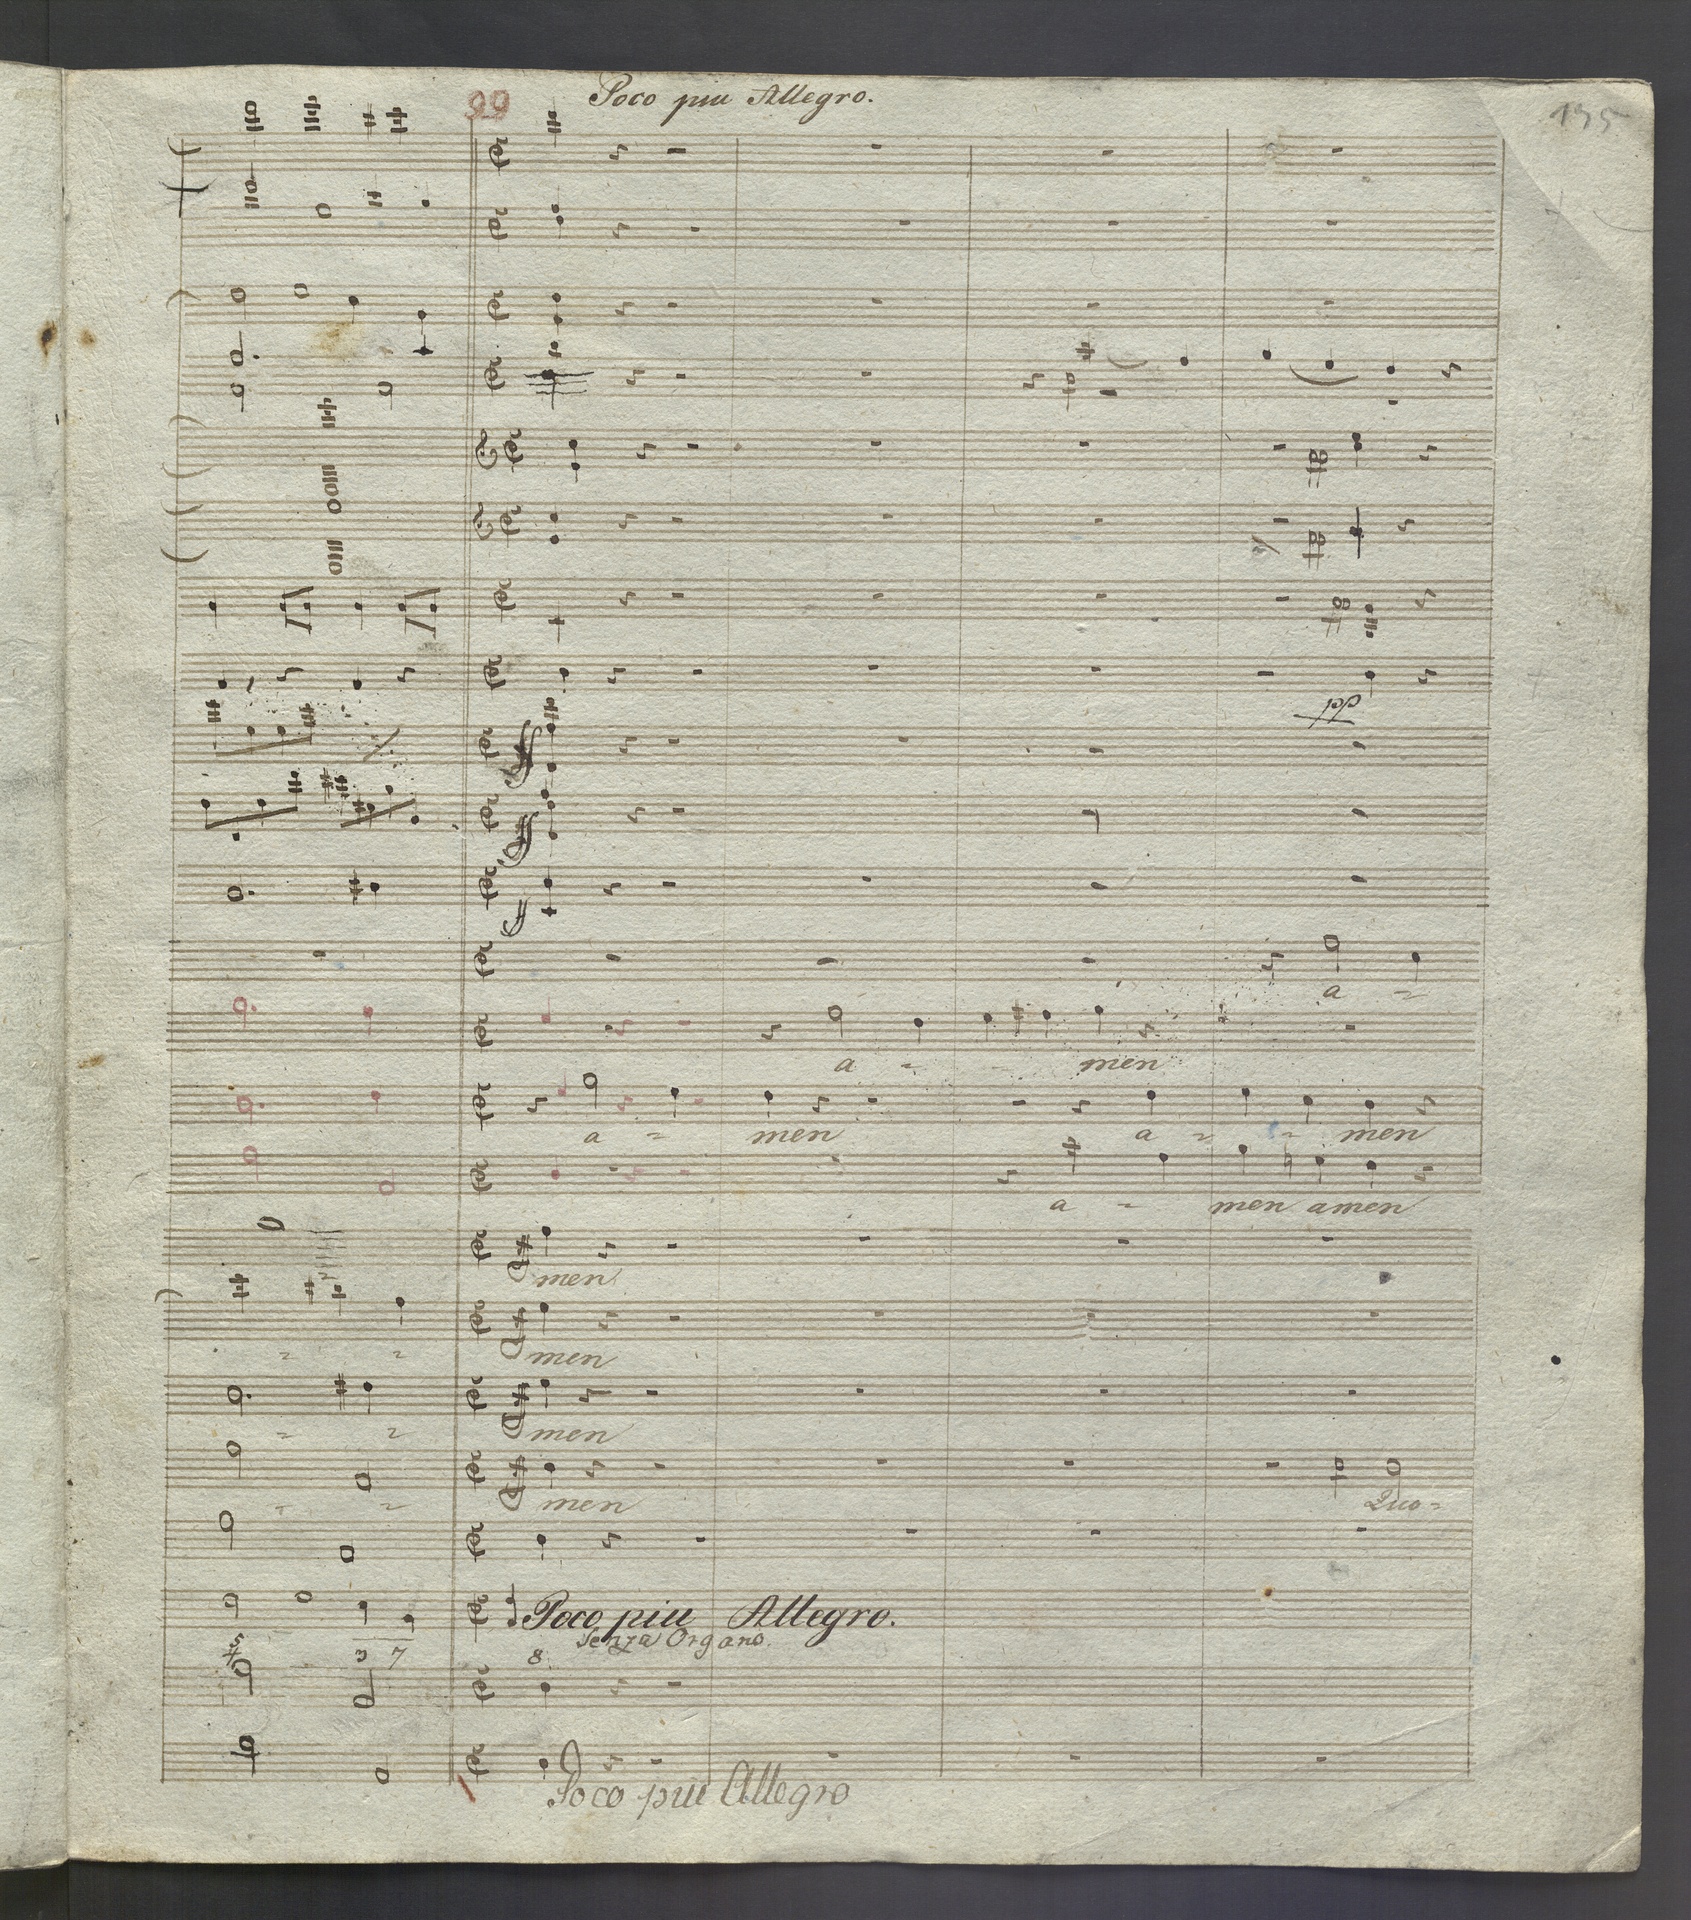 99 Poco piu Allegro.
195
pp
a =
a = - men
a = men a = = men
a = men amen
men
= = men
= = men
= = men Quo =
Poco piu Allegro.
Senza Organo
5 3 7 8
Poco piu Allegro